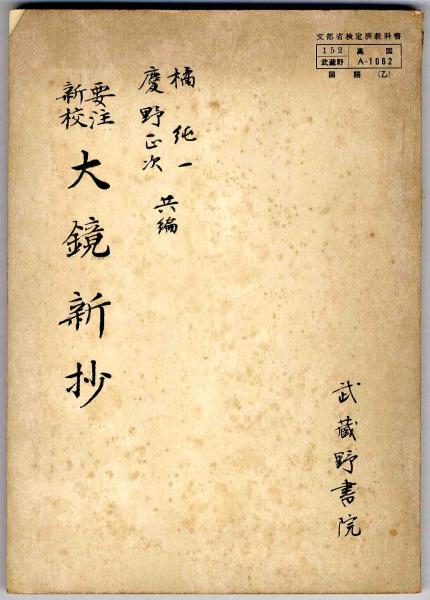 文部省検定済教科書
152 高国
武蔵野 A-1062
国語 (乙)
橘純一
慶野正次
共編
要注
新校
大鏡新抄
武蔵野書院